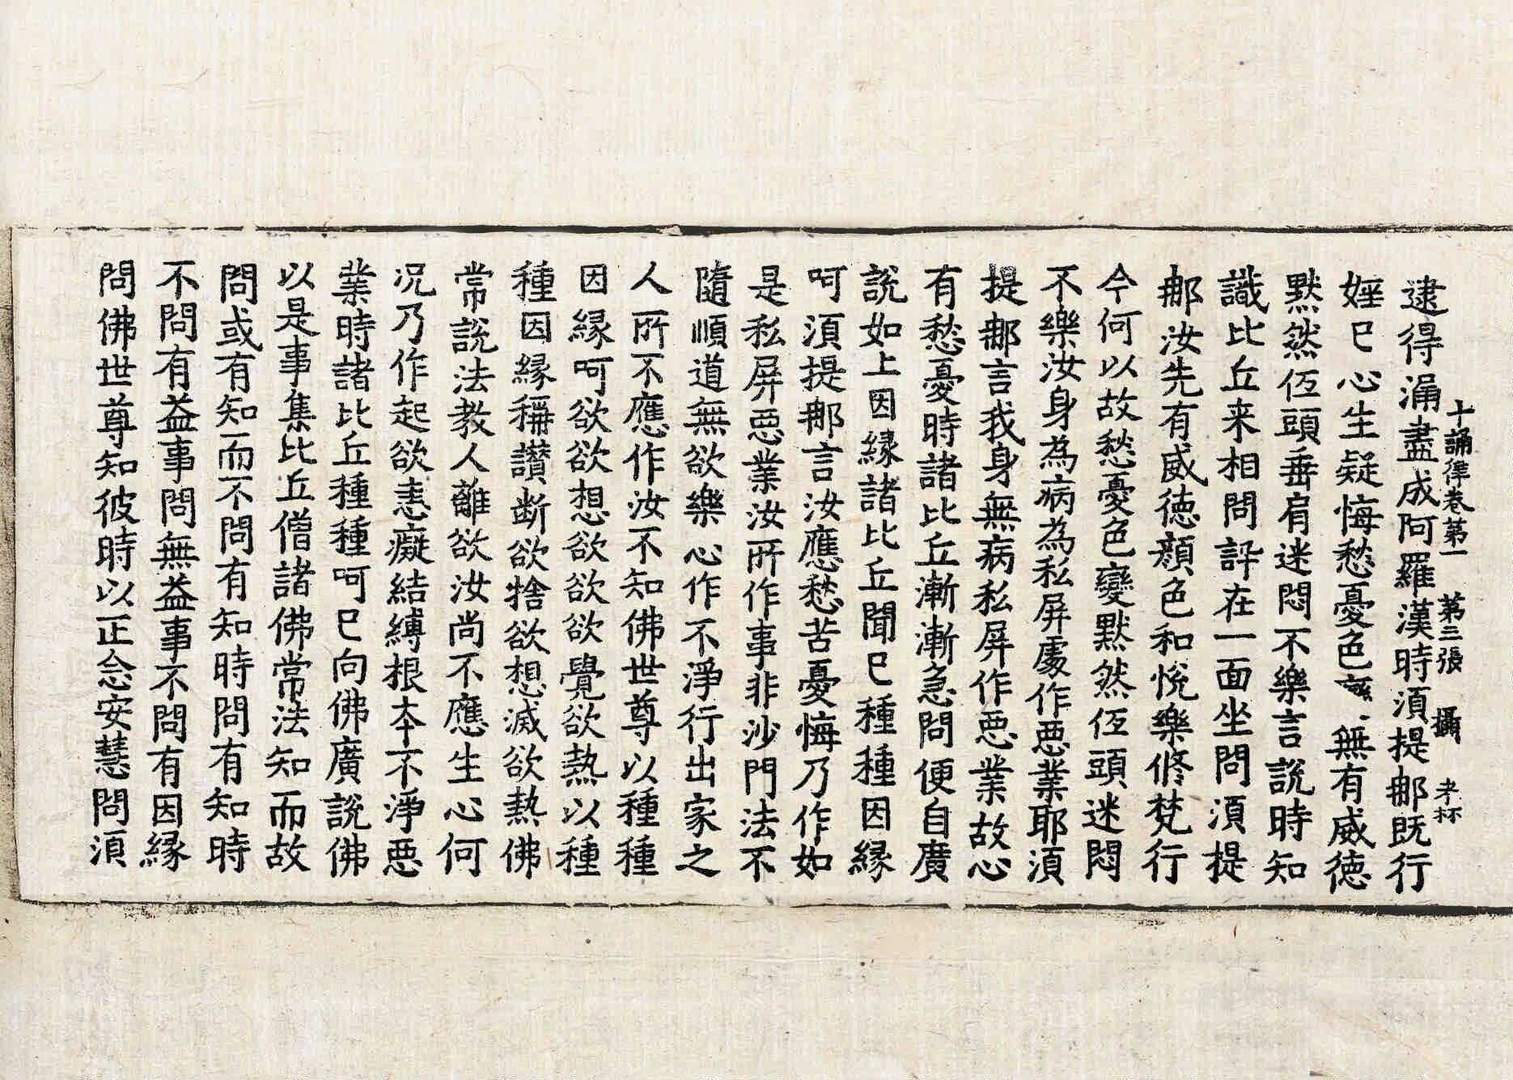 十誦律卷第一　第三張　攝
逮得漏盡成阿羅漢時須提那既行
婬已心生疑悔愁憂色變無有威德
默然伍頭垂肩迷悶不樂言說時知
識比丘来相問訊在一面坐問須提
那汝先有威德顏色和悅樂修梵行
今何以故愁憂色變默然伍頭迷悶
不樂汝身為病為私屏處作惡業耶須
提那言我身無病私屏作惡業故心
有愁憂時諸比丘漸漸急問便自廣
說如上因緣諸比丘聞已種種因緣
呵須提那言汝應愁苦憂悔乃作如
是私屏惡業汝所作事非沙門法不
隨順道無欲樂心作不淨行出家之
人所不應作汝不知佛世尊以種種
因緣呵欲欲想欲欲欲覺欲熱以種
種因緣稱讚断欲捨欲想滅欲熱佛
常說法教人離欲汝尚不應生心何
况乃作起欲恚癡結縛根本不淨惡
業時諸比丘種種呵已向佛廣說佛
以是事集比丘僧諸佛常法知而故
問或有知而不問有知時問有知時
不問有益事問無益事不問有因緣
問佛世尊知彼時以正念安慧問須